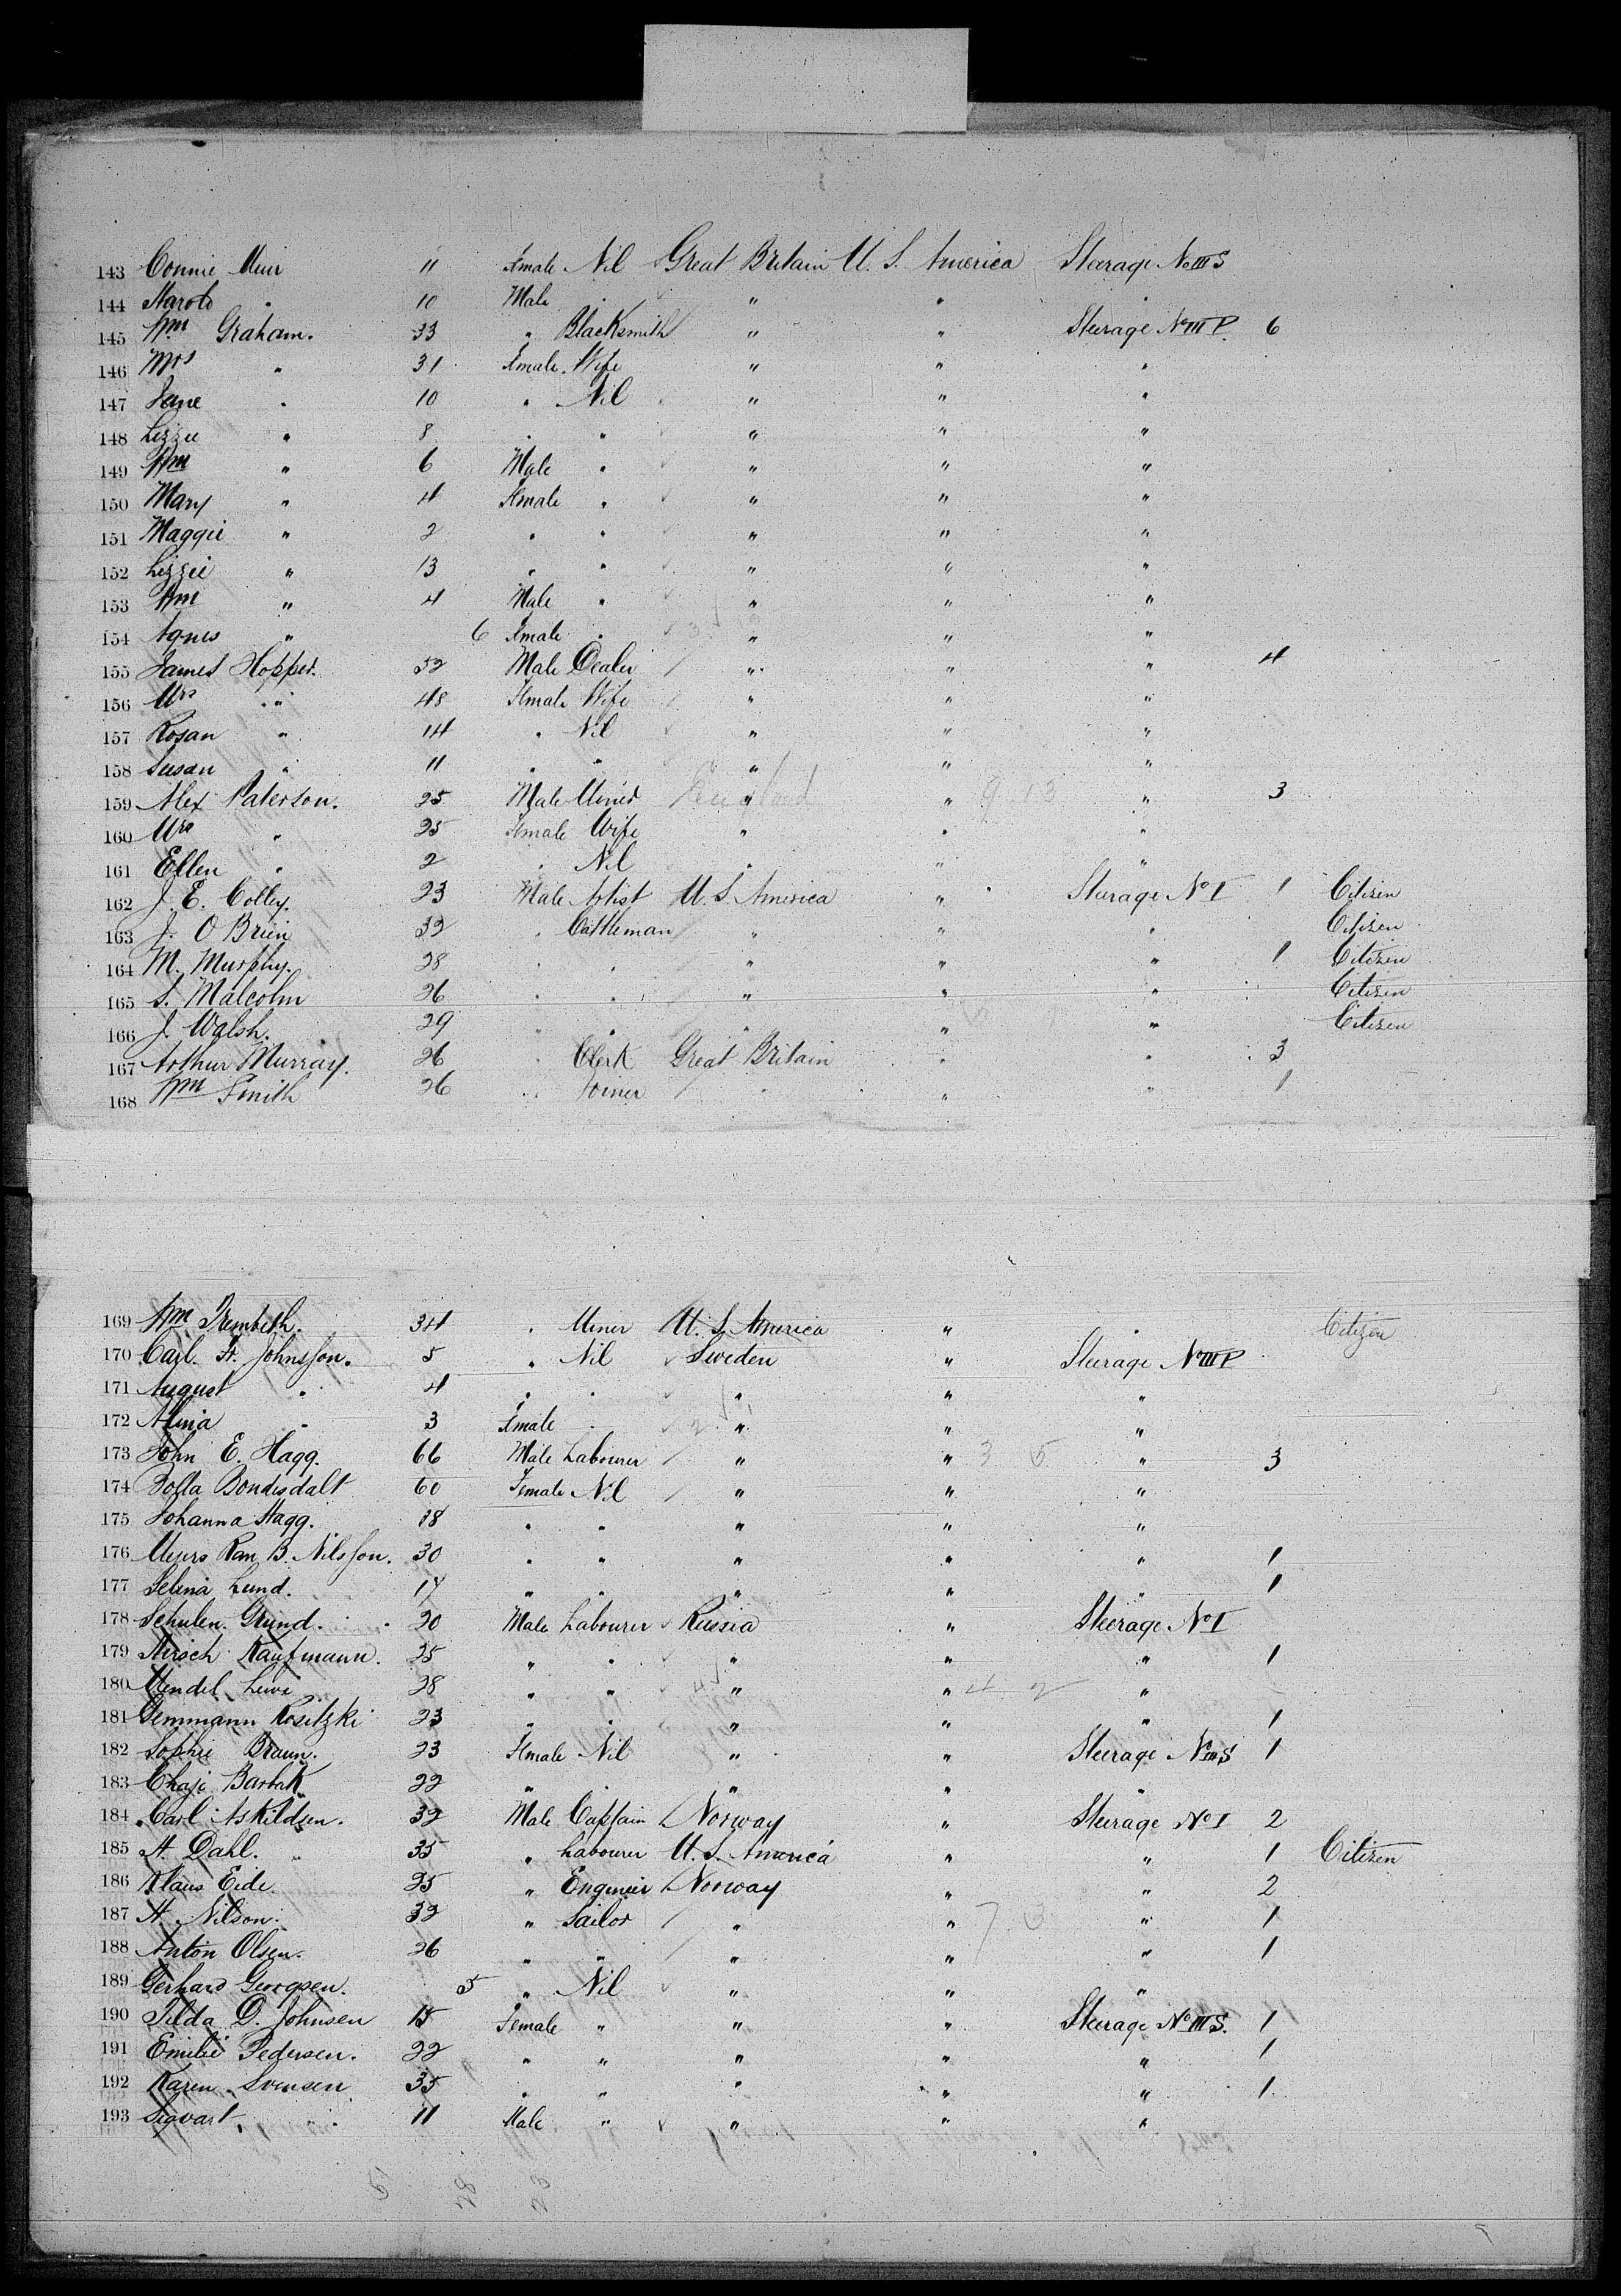 143 Connie Muir 11 Female Nil Great Britain U. S. America Steerage No III S
144 Harold " 10 Male " " " "
145 Wm Graham. 33 " Blacksmith " " Steerage No III P. 6
146 Mrs " 31 Female Wife " " "
147 Jane " 10 " Nil " " "
148 Lizzie " 8 " " " " "
149 Wm " 6 Male " " " "
150 Mary " 4 Female " " " "
151 Maggie " 2 " " " " "
152 Lizzie " 13 " " " " "
153 Wm " 4 Male " " " "
154 Agnes " 6 Female " " " "
155 James Hopper. 52 Male Dealer " " " 4
156 Mrs " 48 Female Wife " " "
157 Rosan " 14 " Nil " " "
158 Susan " 11 " " " " "
159 Alex Paterson. 25 Male Miner England " 9 13 " 3
160 Mrs " 25 Female Wife " " "
161 Ellen " 2 " Nil " " "
162 J. E. Colley. 23 Male Artist U. S. America " Steerage No I 1 Citizen
163 J. O Brien 32 " Cattleman " " " Citizen
164 M. Murphy. 28 " " " " " 1 Citizen
165 S. Malcolm 26 " " " " " Citizen
166 J. Walsh. 29 " " " " " Citizen
167 Arthur Murray. 26 " Clerk Great Britain " " 3
168 Wm Smith 26 " Joiner " " " 1
169 Wm Trembeth. 34 " Miner U. S. America " " Citizen
170 Carl. H. Johnsson. 5 " Nil Sweden " Steerage No III P
171 August " 4 " " " " "
172 Alma " 3 Female " " " "
173 John E. Hagg. 66 Male Labourer " " 3 5 " 3
174 Bondisdalt 60 Female Nil " " "
175 Johanna Hagg. 18 " " " " "
176 B. Nilsson. 30 " " " " " 1
177 Selina Lund. 17 " " " " " 1
178 Schulen Grund. 20 Male Labourer Russia " Steerage No I
179 Hirsch Kaufmann. 25 " " " " " 1
180 Mendel Lewi 28 " " " " 4 2 "
181 Rositzki 23 " " " " " 1
182 Sophie Braun. 23 Female Nil " " Steerage No III S 1
183 Chaje Barbak 22 " " " " "
184 Carl Askildsen. 32 Male Captain Norway " Steerage No I 2
185 H. Dahl. 35 " Labourer U. S. America " " 1 Citizen
186 Klaus Eide. 25 " Engineer Norway " " 2
187 H. Nilson. 32 " Sailor " " 7 3 " 1
188 Anton Olsen. 26 " " " " " 1
189 Gerhard Georgsen. 5 " Nil " " "
190 Tilda D. Johnsen 15 Female " " " Steerage No III S. 1
191 Emilie Pedersen. 22 " " " " " 1
192 Karen Svensen 35 " " " " " 1
193 Sigvart " 11 Male " " " "